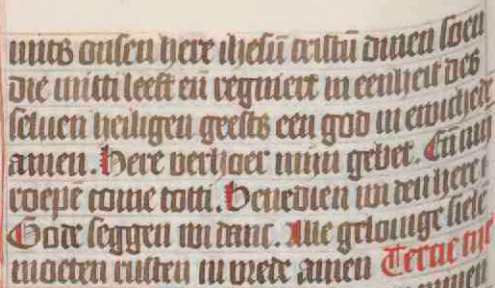 mits onsen here ihesū cristū dinen soen
die mitti leeft eñ regniert in eenheit des
seluen heiligen geests een god in ewichede
amen. Here verhoer mijn gebet. Eñ mijn
roepē come totti. Benedien wi den here
Gode seggen wi danc. Alle gelouige siele
moeten rusten in vrede amen Tercie tijt